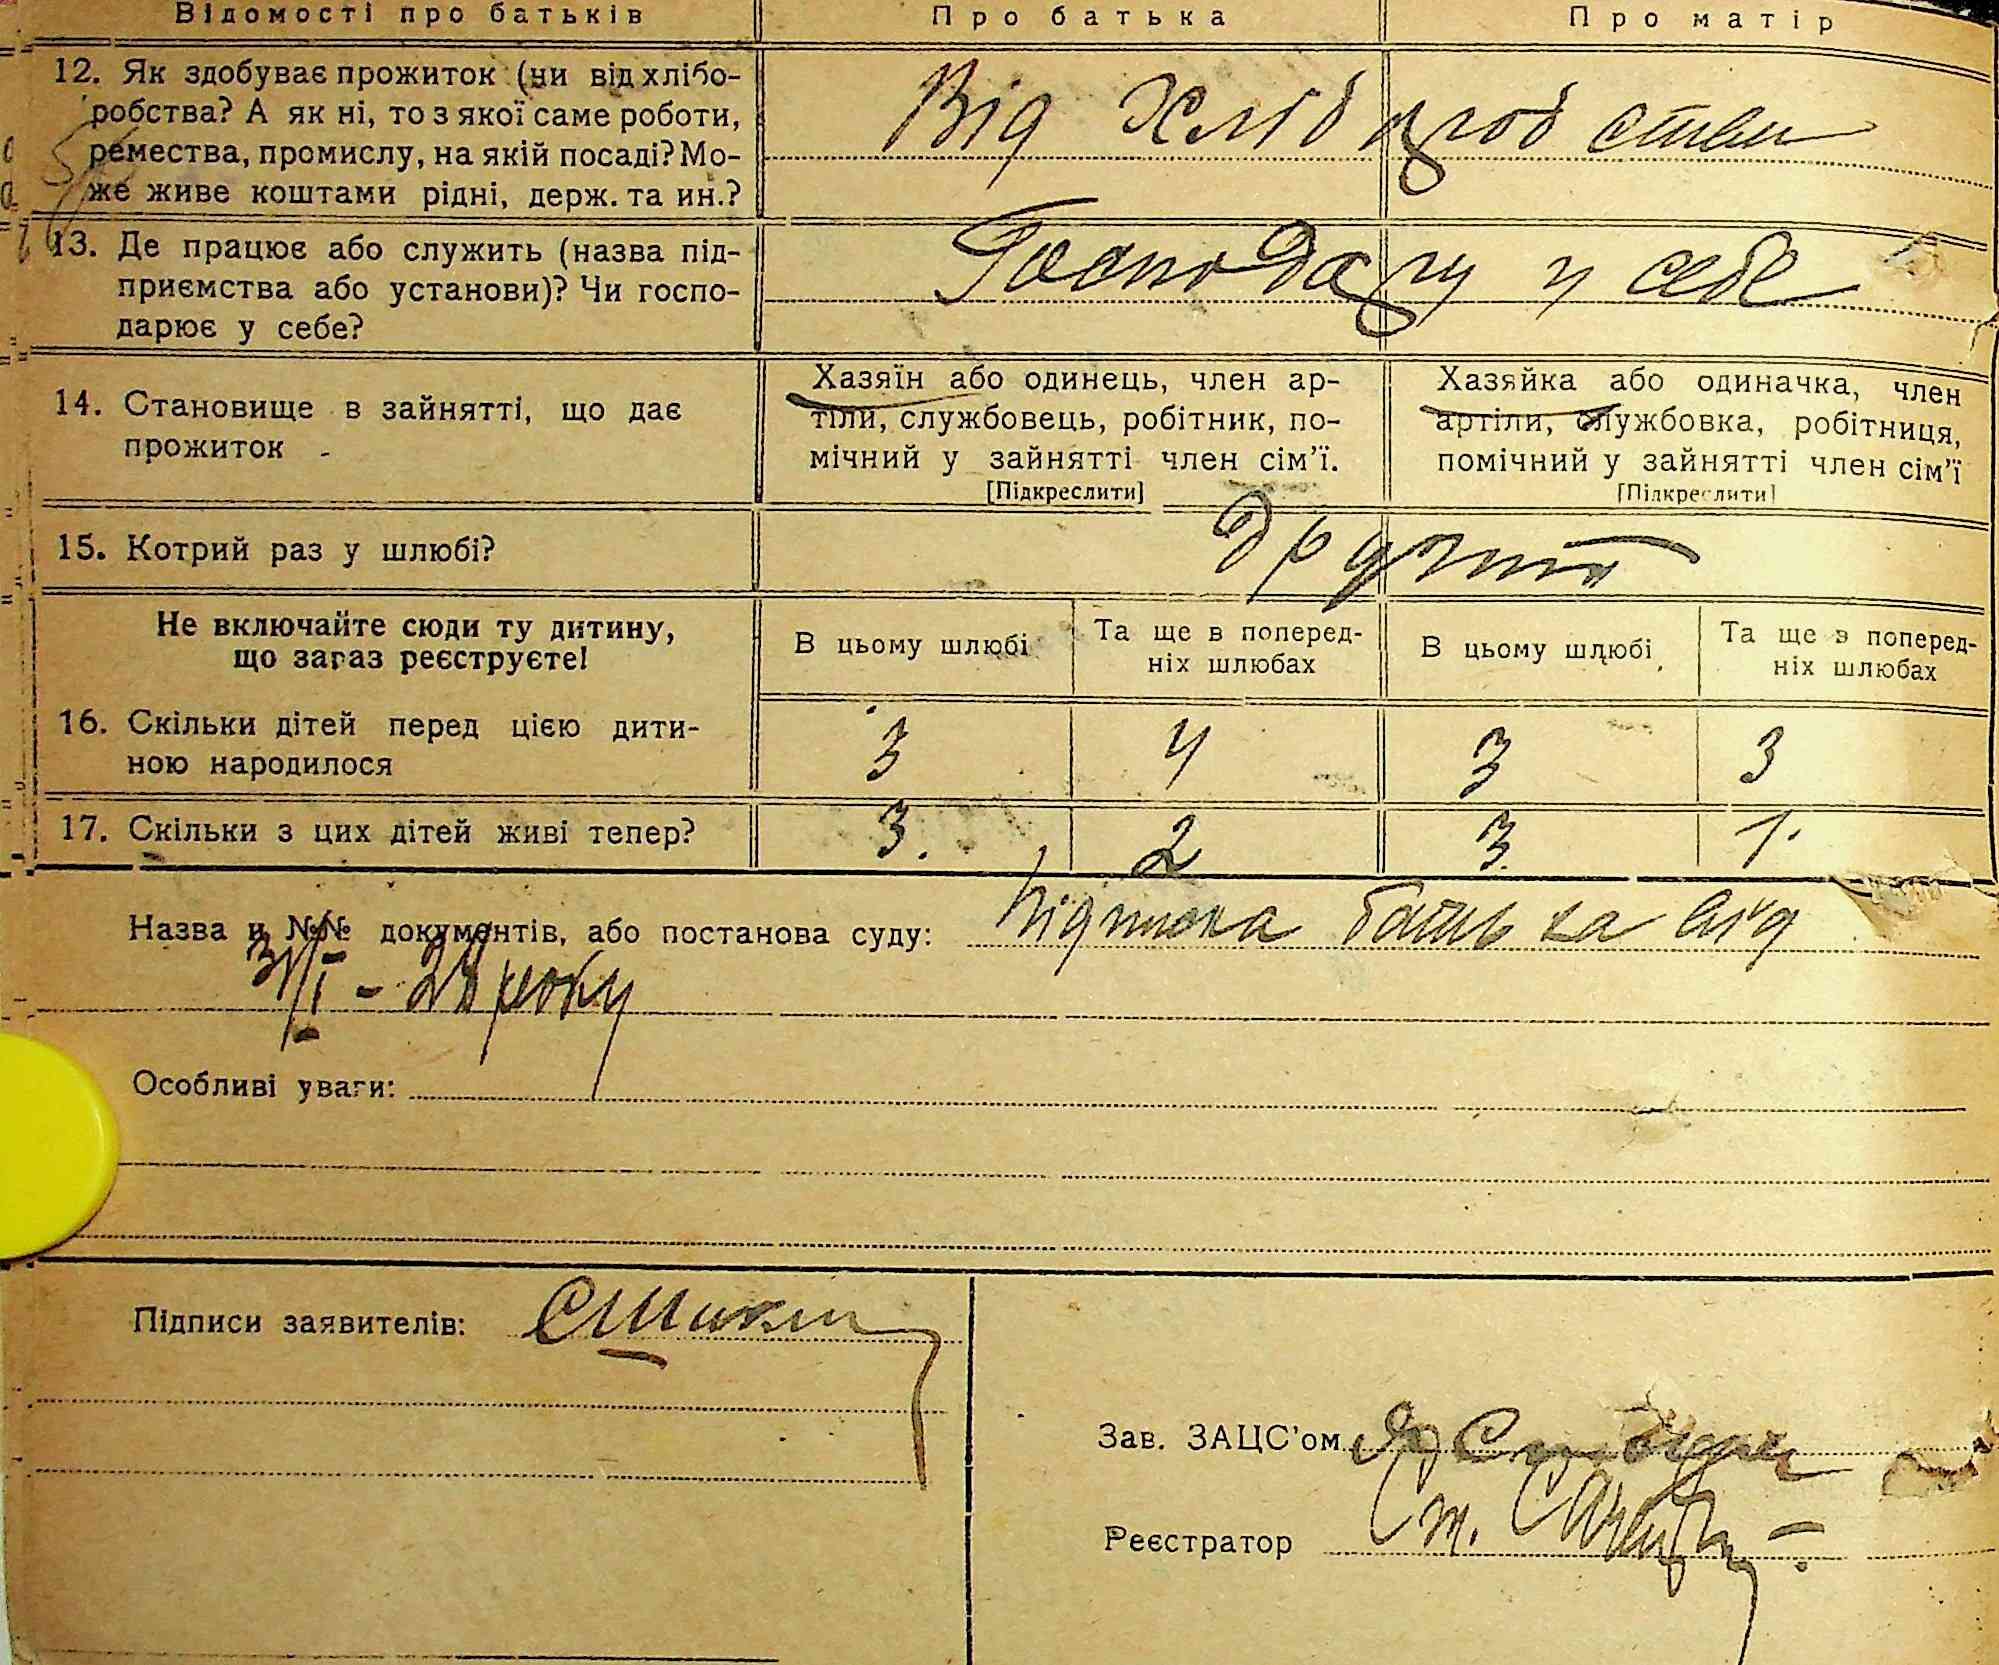 Відомості про батьків Про батька Про матір
12. Як здобуває прожиток (чи від хлібо-
робства? А як ні, то з якої саме роботи,
ремества, промислу, на якій посаді? Мо-
же живе коштами рідні, держ. та ин.?
Від Хлібороб ства
13. Де працює або служить (назва під-
приємства або установи)? Чи госпо-
дарює у себе?
Господару у себе
14. Становище в зайнятті, що дає
прожиток
Хазяїн або одинець, член ар-
тіли, службовець, робітник, по-
мічний у зайнятті член сім'ї.
[Підкреслити]
Хазяйка або одиначка, член
артіли, службовка, робітниця,
помічний у зайнятті член сім'ї
[Підкреслити]
15. Котрий раз у шлюбі?
Не включайте сюди ту дитину,
що зараз реєструєте!
В цьому шлюбі
Та ще в поперед-
ніх шлюбах
В цьому шлюбі
Та ще в поперед-
ніх шлюбах
16. Скільки дітей перед цією дити-
ною народилося
3 4 3 3
17. Скільки з цих дітей живі тепер?
3. 2 3. 1.
Назва и №№ документів, або постанова суду: Підписка батька від
31/I - 28 року
Особливі уваги:
Підписи заявителів:
Зав. ЗАЦС'ом
Реєстратор